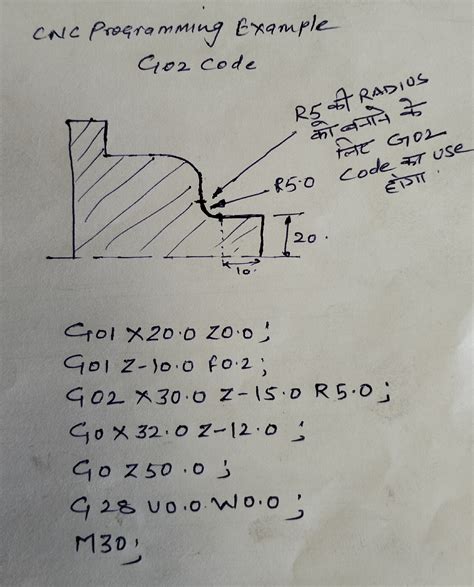 CNC Programming Example
G02 Code
R5 की RADIUS
को बनाने के
लिए G02
Code का USE
होगा.
R5.0
20.
10.
G01 X20.0 Z0.0;
G01 Z-10.0 F0.2;
G02 X30.0 Z-15.0 R5.0;
G0 X32.0 Z-12.0 ;
G0 Z50.0 ;
G28 U0.0 W0.0 ;
M30;